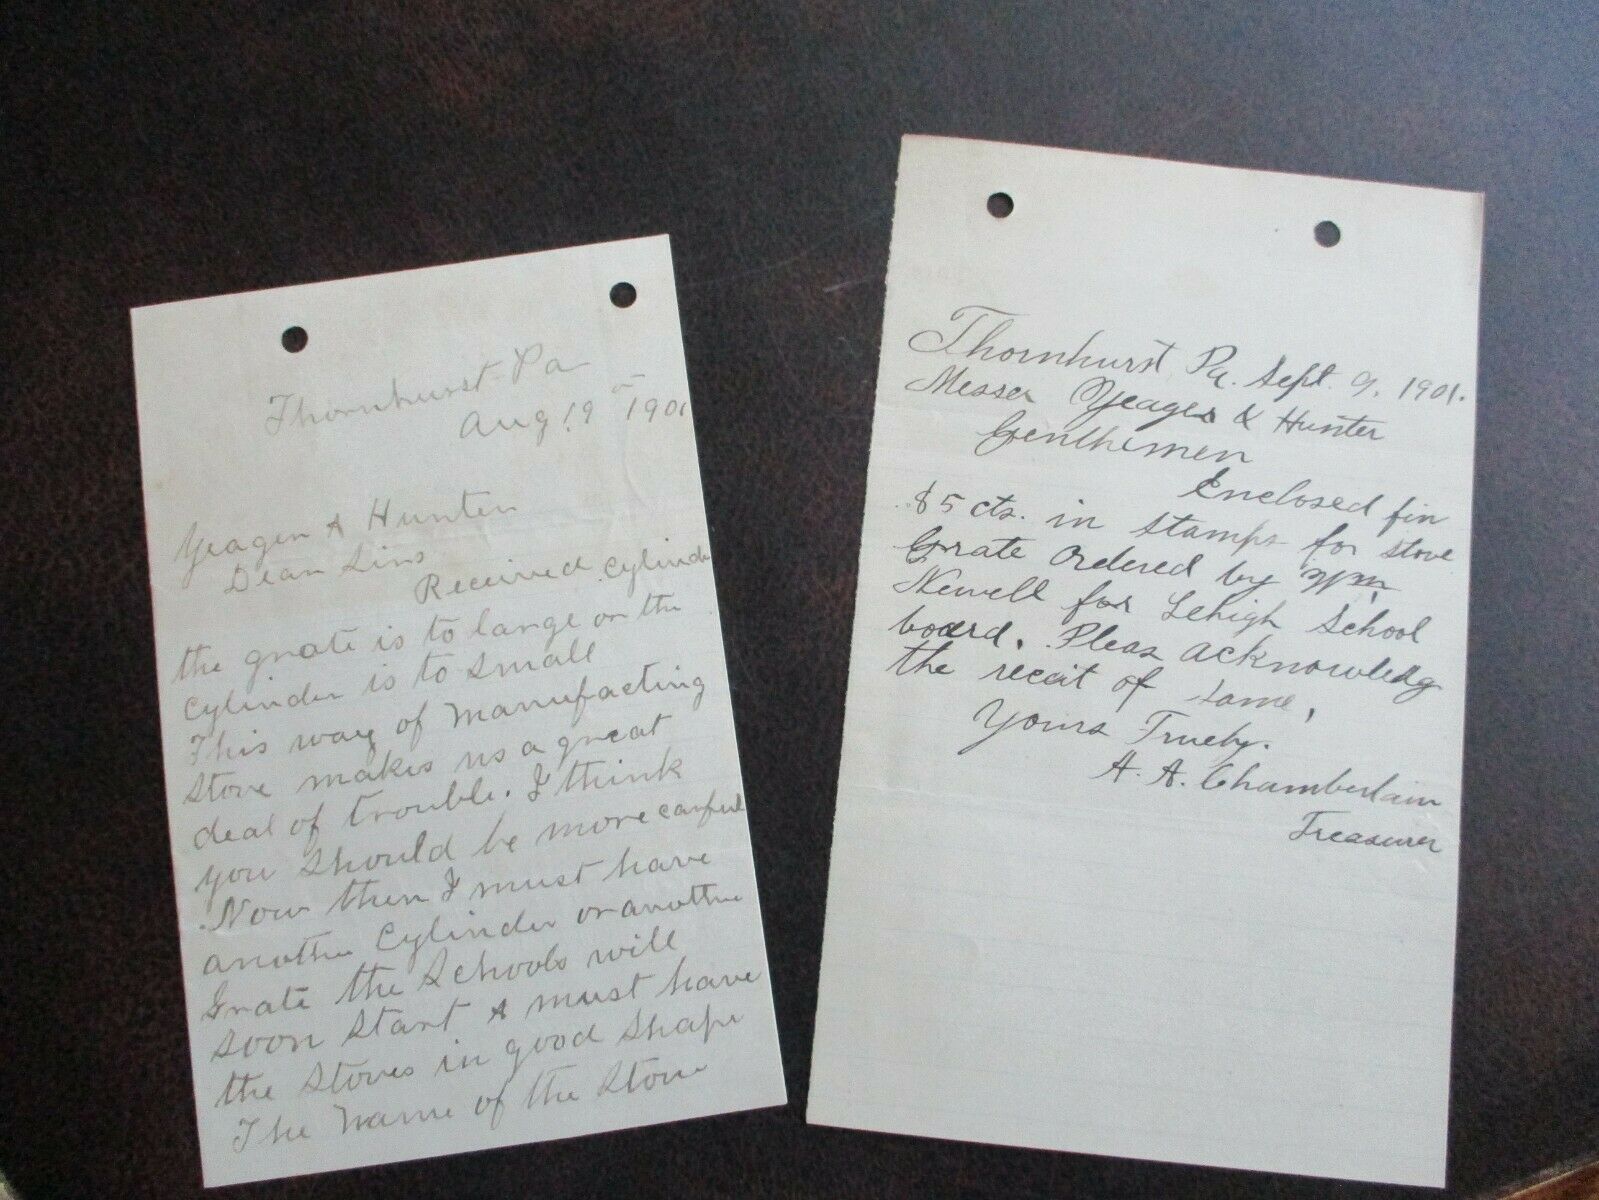 Thornhurst Pa
Aug 19 - 1901
Yeager & Hunter
Dear Sirs
Received Cylinder
the grate is to large or the
Cylinder is to small
This way of manufacting
Stove makes us a great
deal of trouble. I think
you should be more careful
Now then I must have
another Cylinder or another
Grate the Schools will
soon start & must have
the stoves in good shape
The Name of the Stove
Thornhurst Pa. Sept. 9, 1901.
Messer Yeager & Hunter
Genthemen
Enclosed fin
85 cts. in stamps for stove
Grate Ordered by Wm,
Newell for Lehigh School
board. Pleas acknowledg
the receit of same,
Yours Truely.
A. A. Chamberlain
Treasurer